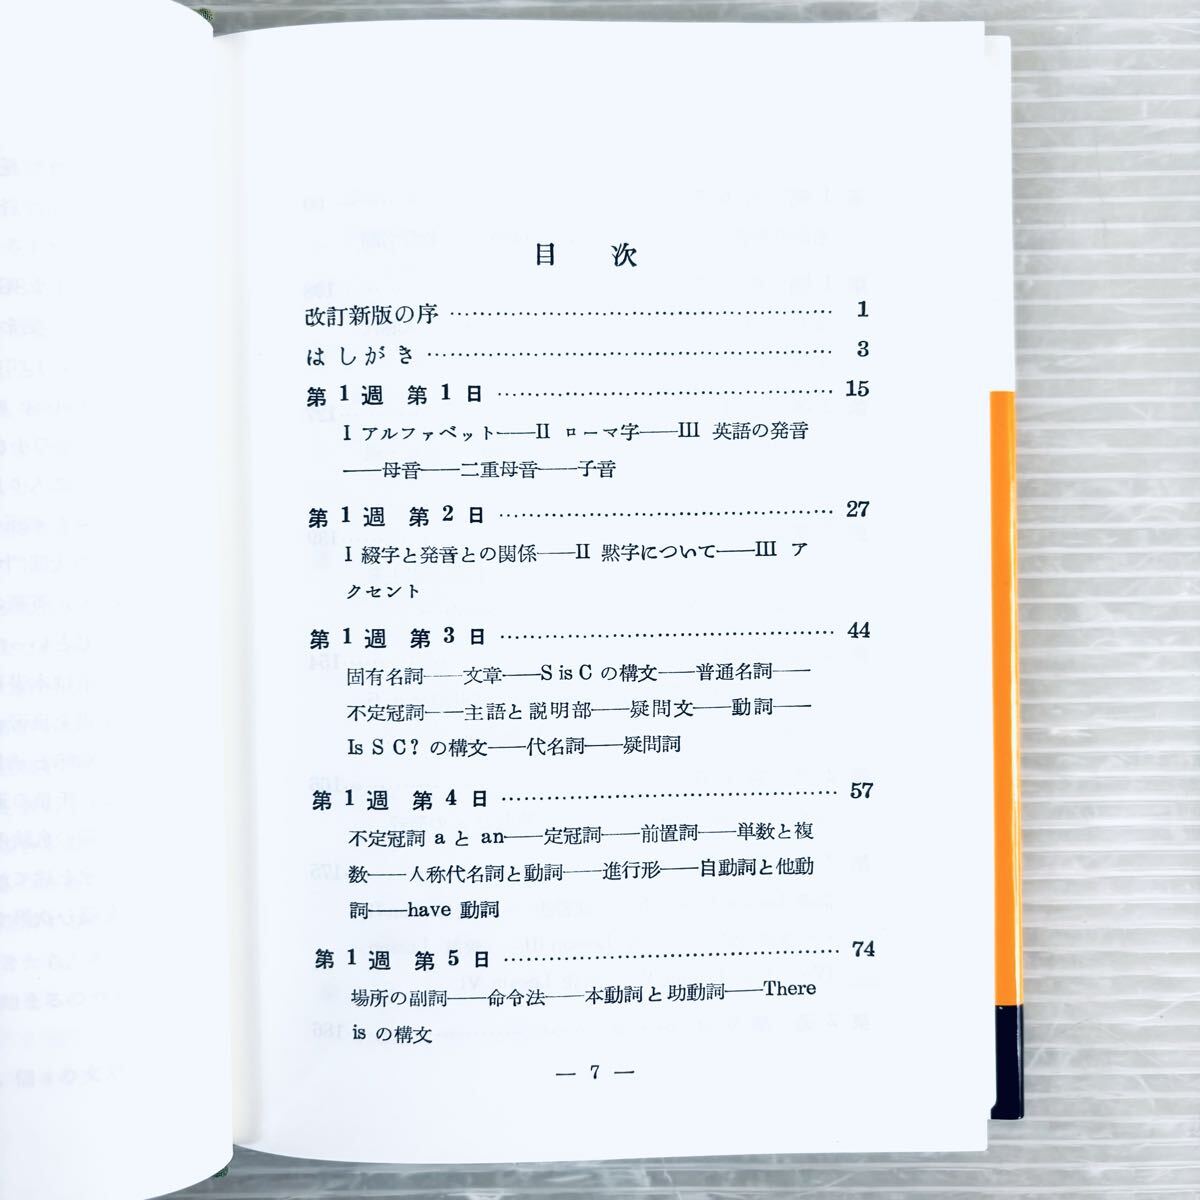 目 次
改訂新版の序 ………………………………………… 1
はしがき ………………………………………… 3
第1週 第1日 ………………………………… 15
I アルファベット——II ローマ字——III 英語の発音
——母音——二重母音——子音
第1週 第2日 ………………………………… 27
I 綴字と発音との関係——II 黙字について——III ア
クセント
第1週 第3日 ………………………………… 44
固有名詞——文章——S is C の構文——普通名詞——
不定冠詞——主語と説明部——疑問文——動詞——
Is S C? の構文——代名詞——疑問詞
第1週 第4日 ………………………………… 57
不定冠詞 a と an——定冠詞——前置詞——単数と複
数——人称代名詞と動詞——進行形——自動詞と他動
詞——have 動詞
第1週 第5日 ………………………………… 74
場所の副詞——命令法——本動詞と助動詞——There
is の構文
— 7 —